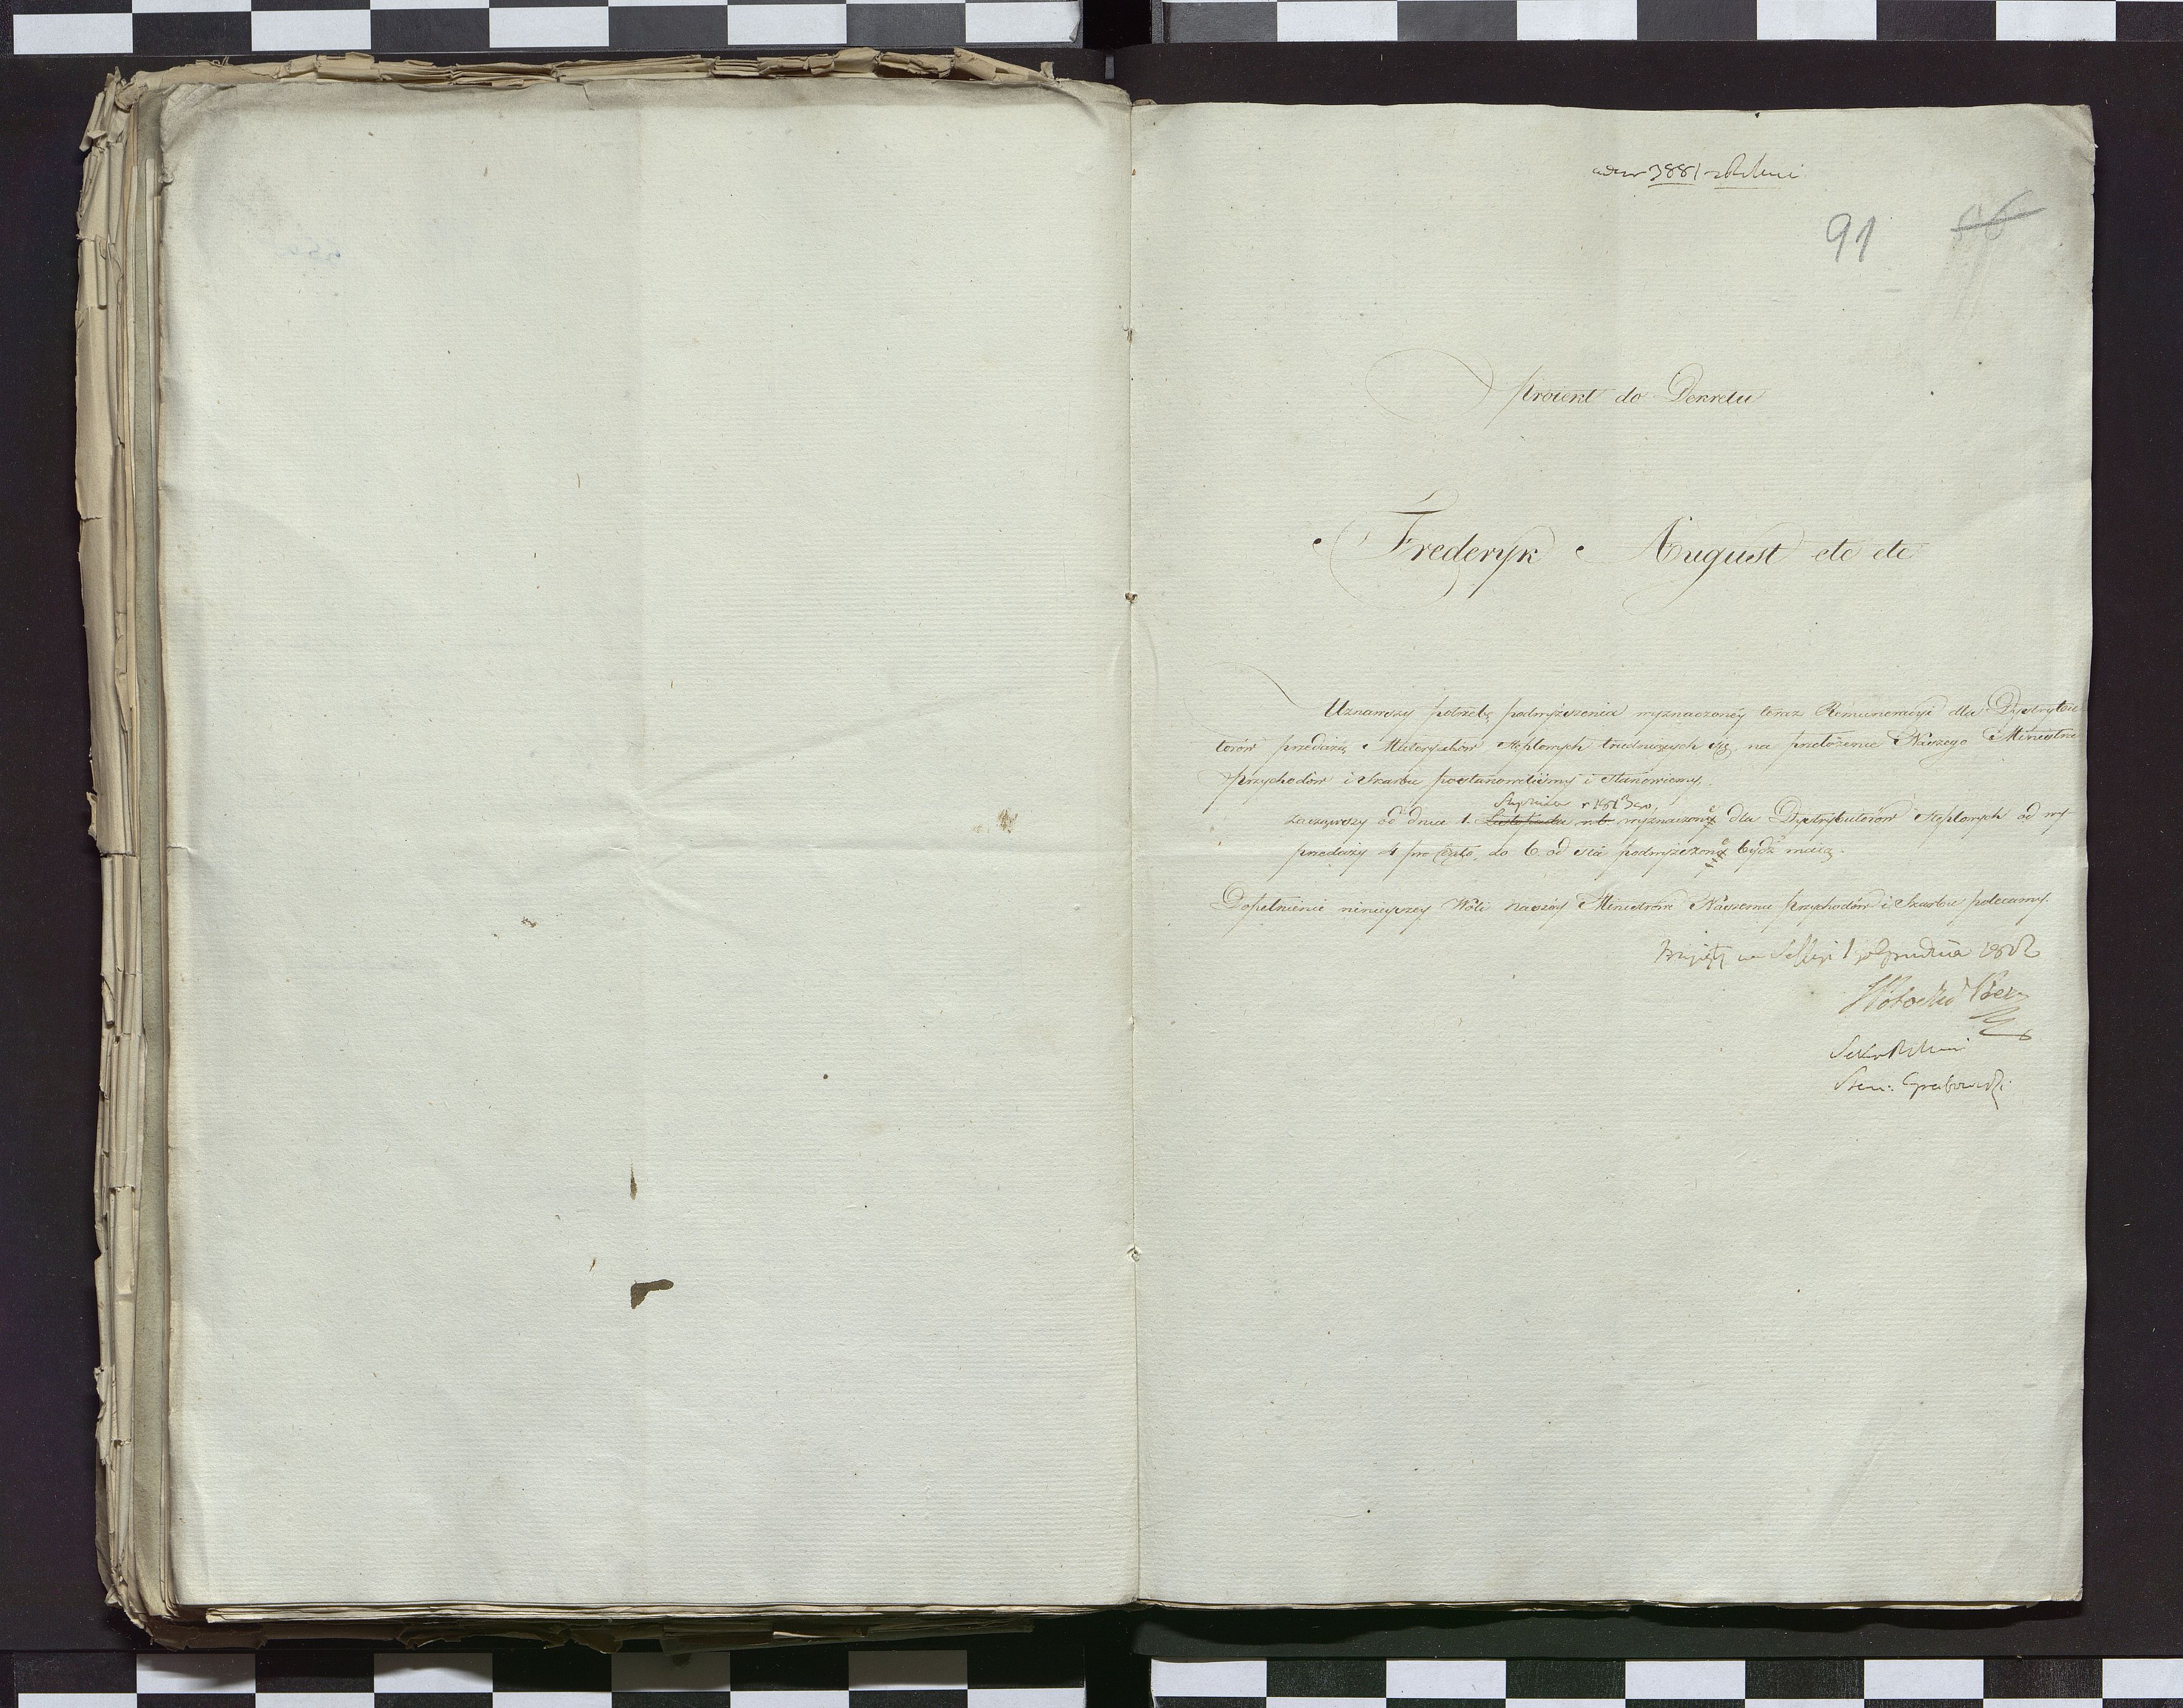 3881
91 56
Proiekt do Dekretu
Frederyk August etc etc
Uznawszy potrzebę podwyższenia wyznaczonéy teraz Remuneracyi dla Dystrybu
torów przedażą Materyałów Stęplowych trudniących się, na przełożenie Naszego Ministra
Przychodów i Skarbu postanowiliśmy i Stanowiemy,
Stycznia r 1813go,
Zacząwszy od dnia 1. Listopada r.b. wyznaczone dla Dystrybutorów Stęplowych od wy
przedaży 4 pro Cento, do 6. od sta podwyższone bydź maią.
Dopełnienie ninieyszey Woli Naszéy Ministrowi Naszemu Przychodów i Skarbu polecamy.
Przyięty na Sessyi 1 Grudnia 1812
S Potocki Prez
Sekr
Stan: Grabowski